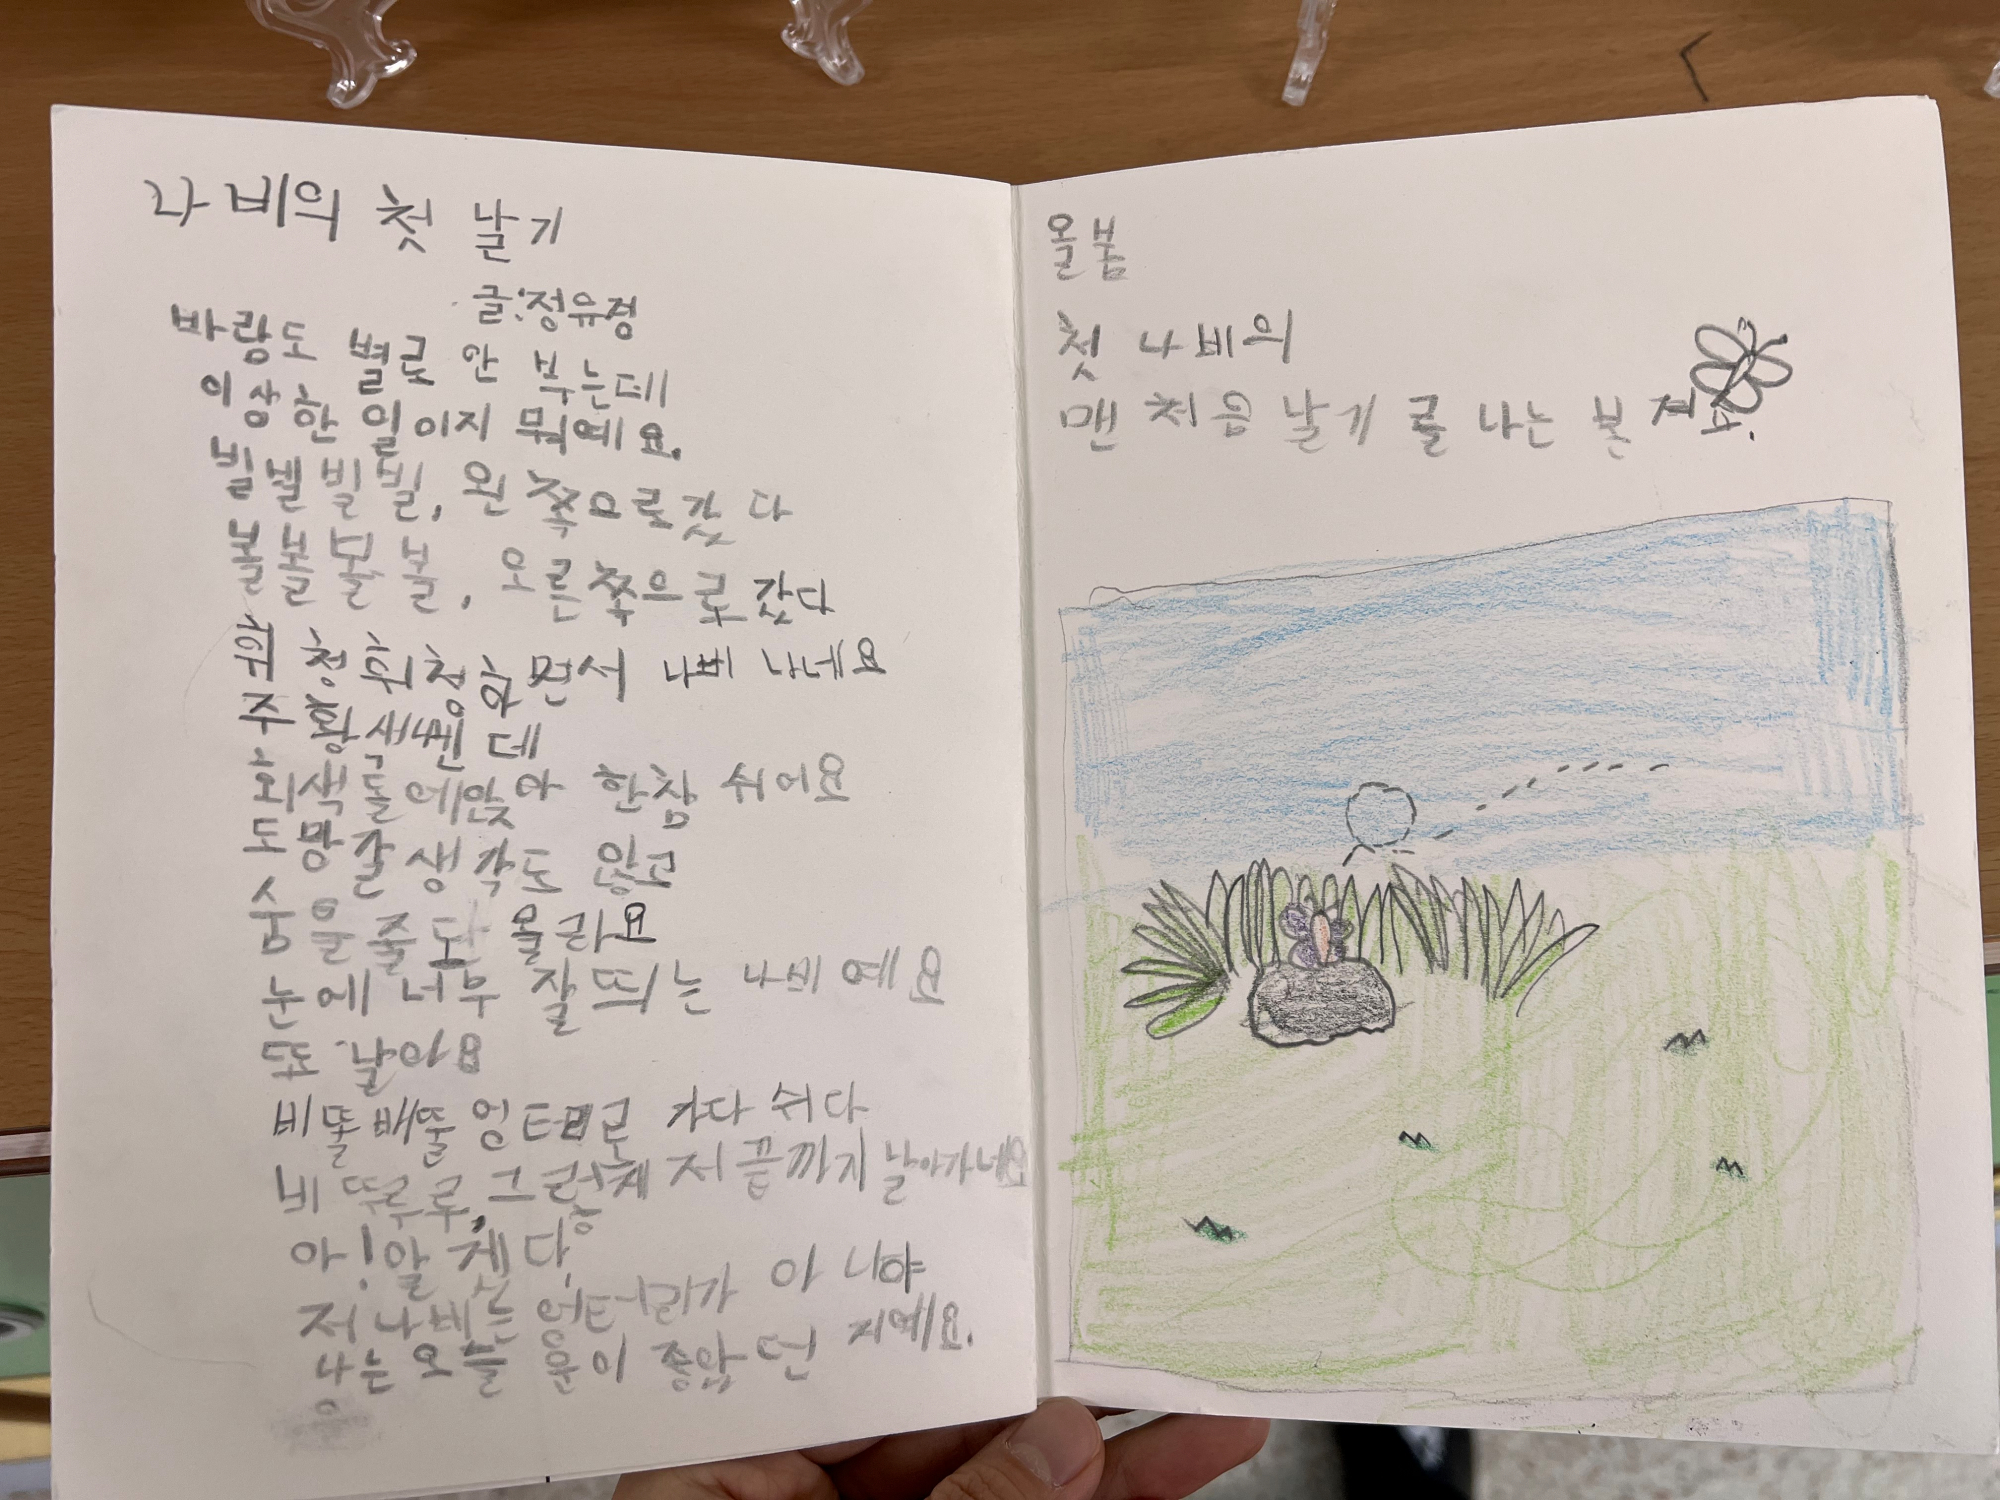 나비의 첫 날기
글:정유정
바람도 별로 안 부는데
이상한 일이지 뭐예요.
빌빌빌빌, 왼쪽으로 갔다
볼볼볼볼, 오른쪽으로 갔다
휘청휘청하면서 나비 나네요
주황색벤데
회색돌에앉아 한참 쉬어요
도망갈 생각도 않고
숨을 줄도 몰라요
눈에 너무 잘 띄는 나비예요
또 날아요
비뚤배뚤 엉터리로 가다 쉬다
비뚜루루, 그렇게 저 끝까지 날아가네요
아! 알겠다.
저 나비는 엉터리가 아니야
나는 오늘 운이 좋았던 거예요.
올봄
첫 나비의
맨 처음 날기를 나는 본 거죠.